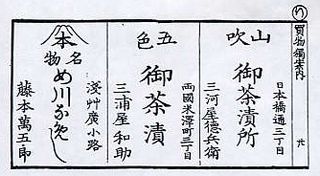 買物獨案内
日本橋通三丁目
山吹
御茶漬所
三河屋德兵衛
兩國米澤町三丁目
五色
御茶漬
三浦屋和助
淺艸廣小路
本
名物
め川なめし
藤本萬五郎